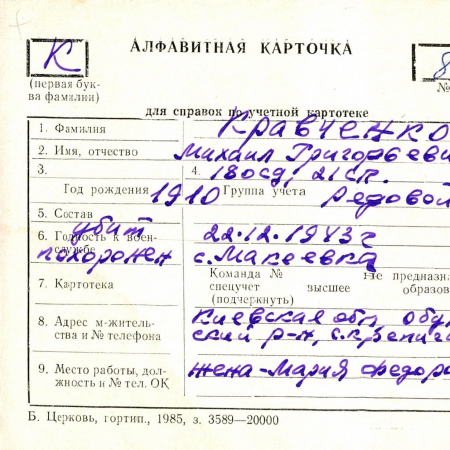 К
АЛФАВИТНАЯ КАРТОЧКА
8
(первая бук-
ва фамилии)
№
для справок по учетной картотеке
1. Фамилия Кравченко
2. Имя, отчество Михаил Григорьеви
3. 4. 180сд, 21сп.
Год рождения 1910 Группа учета Редовой
5. Состав
убит
6. Годность к воен- 22.12.1943г
службе
похоронен с. Макеевка
Команда № Не предназна
7. Картотека спецучет высшее образов
(подчеркнуть)
8. Адрес м-житель- Киевская обл Обу
ства и № телефона ский р-н, с.
9. Место работы, дол- жена - Мария Федоро
жность и № тел. ОК
Б. Церковь, гортип., 1985, з. 3589—20000